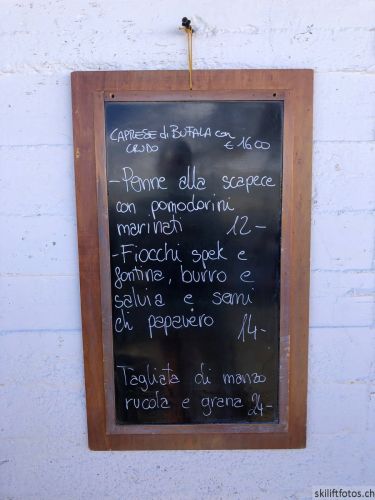 CAPRESE di BUFALA con
CRUDO € 16.00
- Penne alla scapece
con pomodorini
marinati 12-
- Fiocchi spek e
fontina, burro e
salvia e semi
di papavero 14-
Tagliata di manzo
rucola e grana 24-
skiliftfotos.ch